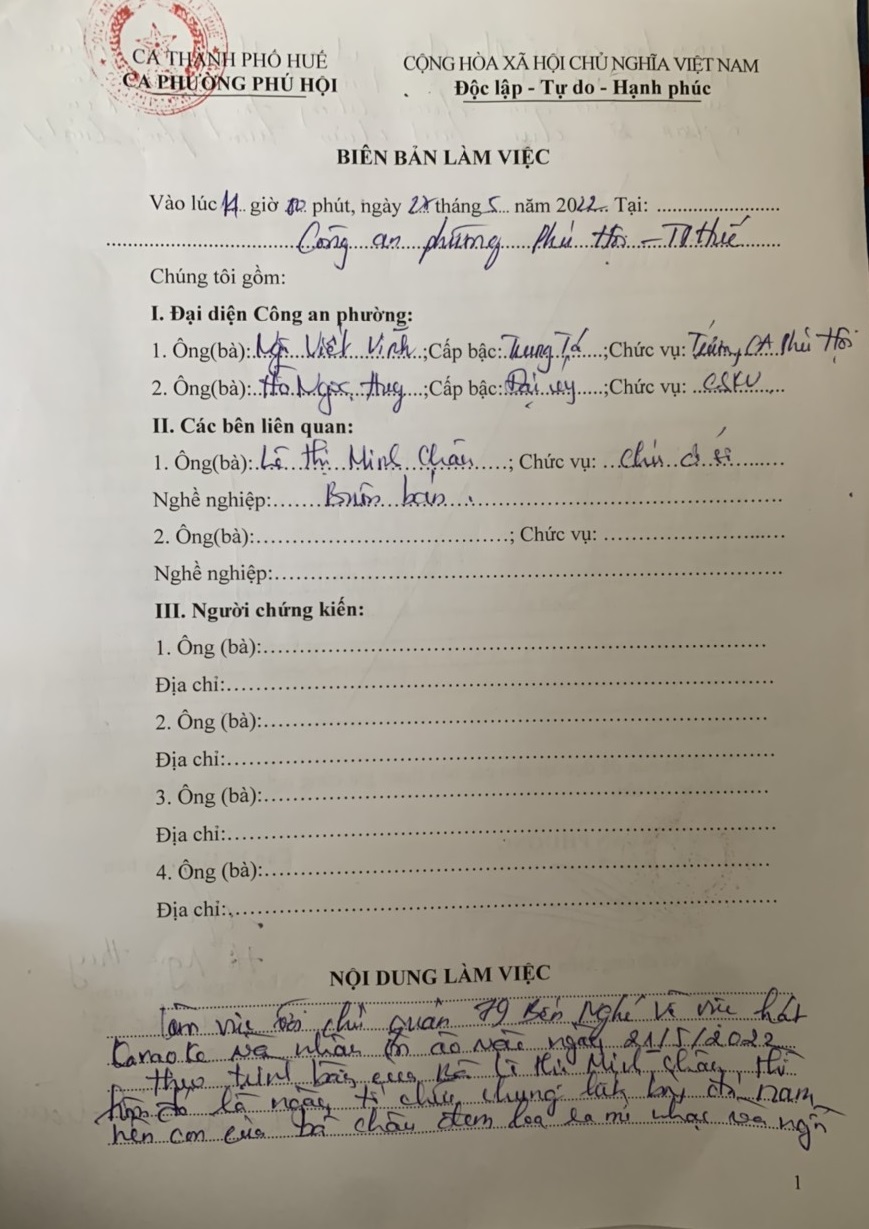 CA THÀNH PHỐ HUẾ
CA PHƯỜNG PHÚ HỘI
CỘNG HÒA XÃ HỘI CHỦ NGHĨA VIỆT NAM
Độc lập - Tự do - Hạnh phúc
BIÊN BẢN LÀM VIỆC
Vào lúc giờ phút, ngày tháng 5 năm 2022 Tại:
Công an phường Phú Hội - TP Huế
Chúng tôi gồm:
I. Đại diện Công an phường:
1. Ông(bà): Ngô Viết Vĩnh ;Cấp bậc: Trung Tá ;Chức vụ: Trưởng CA Phú Hội
2. Ông(bà): Hồ Ngọc Huy ;Cấp bậc: Đại uý ;Chức vụ: CSKV
II. Các bên liên quan:
1. Ông(bà): Lê Thị Minh Châu ; Chức vụ: Chủ cơ sở
Nghề nghiệp: Buôn bán
2. Ông(bà): ; Chức vụ:
Nghề nghiệp:
III. Người chứng kiến:
1. Ông (bà):
Địa chỉ:
2. Ông (bà):
Địa chỉ:
3. Ông (bà):
Địa chỉ:
4. Ông (bà):
Địa chỉ:
NỘI DUNG LÀM VIỆC
Làm việc với chủ quán 79 Bến Nghé về việc hát
Karaoke và nhân ồn ào vào ngày 21/5/2022
theo trình bày của Bà Lê Thị Minh Châu, thì
hôm đó là ngày tổ chức chung kết
nên con của bà Châu đem loa ra mở nhạc và
1